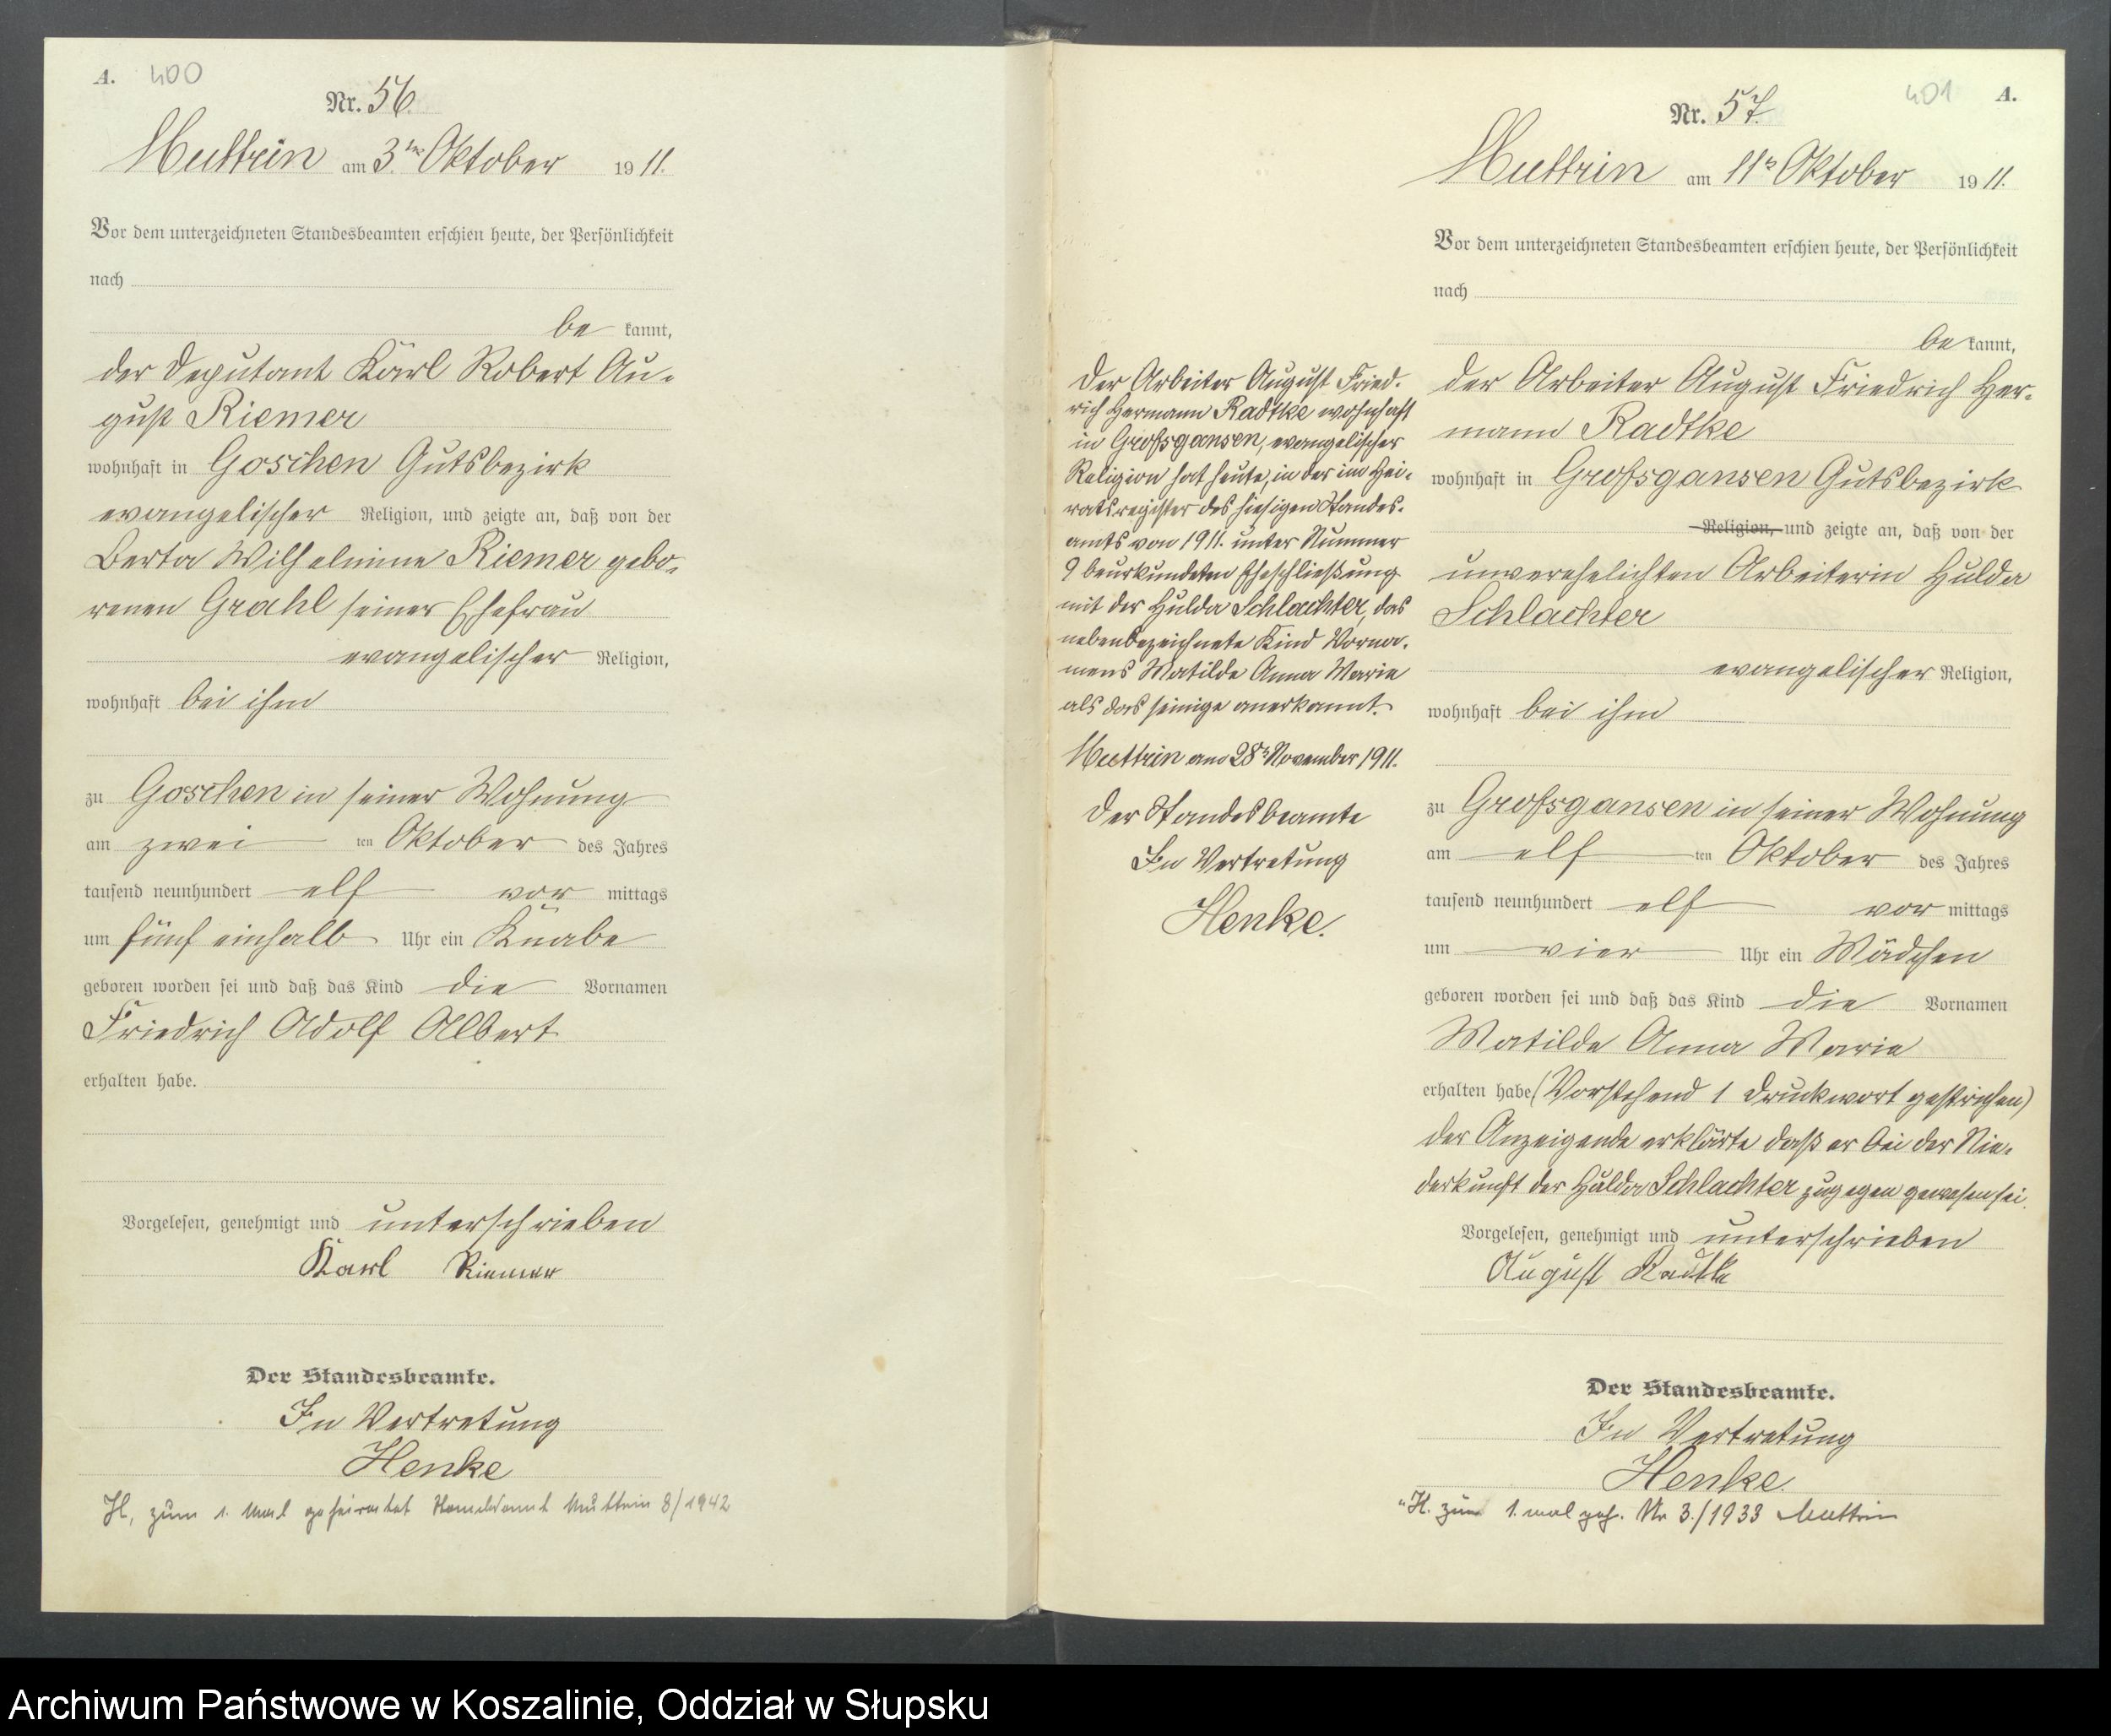 A. 400
Nr. 56.
Muttrin am 3ten Oktober 1911.
Vor dem unterzeichneten Standesbeamten erschien heute, der Persönlichkeit
nach
be kannt,
der Deputant Karl Robert Au-
gust Riemer
wohnhaft in Goschen Gutsbezirk
evangelischer Religion, und zeigte an, daß von der
Berta Wilhelmine Riemer gebo-
renen Grahl seiner Ehefrau
evangelischer Religion,
wohnhaft bei ihm
zu Goschen in seiner Wohnung
am zwei ten Oktober des Jahres
tausend neunhundert elf vor mittags
um fünf einhalb Uhr ein Knabe
geboren worden sei und daß das Kind die Vornamen
Friedrich Adolf Albert
erhalten habe.
Vorgelesen, genehmigt und unterschrieben
Karl Riemer
Der Standesbeamte.
In Vertretung
Henke
H, zum 1. Mal geheiratet Standesamt Muttrin 8/1942
Der Arbeiter August Fried-
rich Hermann Radtke wohnhaft
in Großgansen, evangelischer
Religion hat heute, in der im Hei-
ratsregister des hiesigen Standes-
amts von 1911. unter Nummer
9 beurkundeten Eheschließung
mit der Hulda Schlachter, das
nebenbezeichnete Kind Vorna-
mens Matilde Anna Marie
als das seinige anerkannt.
Muttrin am 28ten November 1911.
Der Standesbeamte
In Vertretung
Henke.
401 A.
Nr. 57.
Muttrin am 11ten Oktober 1911.
Vor dem unterzeichneten Standesbeamten erschien heute, der Persönlichkeit
nach
be kannt,
der Arbeiter August Friedrich Her-
mann Radtke
wohnhaft in Großgansen Gutsbezirk
Religion, und zeigte an, daß von der
unverehelichten Arbeiterin Hulda
Schlachter
evangelischer Religion,
wohnhaft bei ihm
zu Großgansen in seiner Wohnung
am elf ten Oktober des Jahres
tausend neunhundert elf vor mittags
um vier Uhr ein Mädchen
geboren worden sei und daß das Kind die Vornamen
Matilde Anna Marie
erhalten habe (Vorstehend 1 Druckwort gestrichen)
Der Anzeigende erklärte daß er bei der Nie-
derkunft der Hulda Schlachter zugegen gewesen sei.
Vorgelesen, genehmigt und unterschrieben
August Radtke
Der Standesbeamte.
In Vertretung
Henke.
H. zum 1. mal geh. Nr 3./1933 Muttrin
Archiwum Państwowe w Koszalinie, Oddział w Słupsku